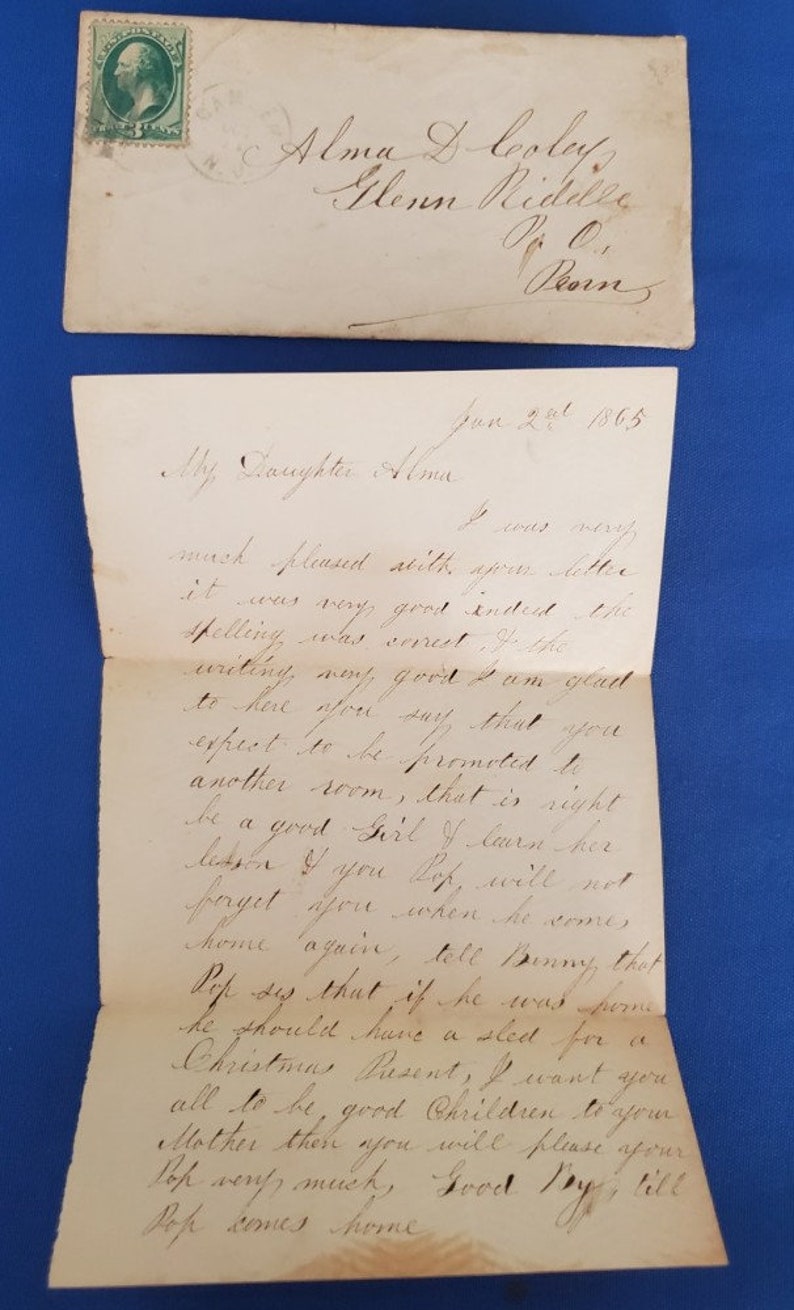 U.S. POSTAGE
3
CENTS
CAMDEN
N.J.
Alma D Coley
Glenn Riddle
P. O.
Penn
Jan 2ed 1865
My Daughter Alma
I was very
much pleased with your letter
it was very good indeed the
spelling was correst, & the
writing very good I am glad
to here you say that you
expect to be promoted to
another room, that is right
be a good Girl & learn her
lesson & you Pop will not
forget you when he comes
home again, tell Bunny that
Pop ses that if he was home
he should have a sled for a
Christmas Present, I want you
all to be good Chrildren to your
Mother then you will please your
Pop very much, Good By, till
Pop comes home